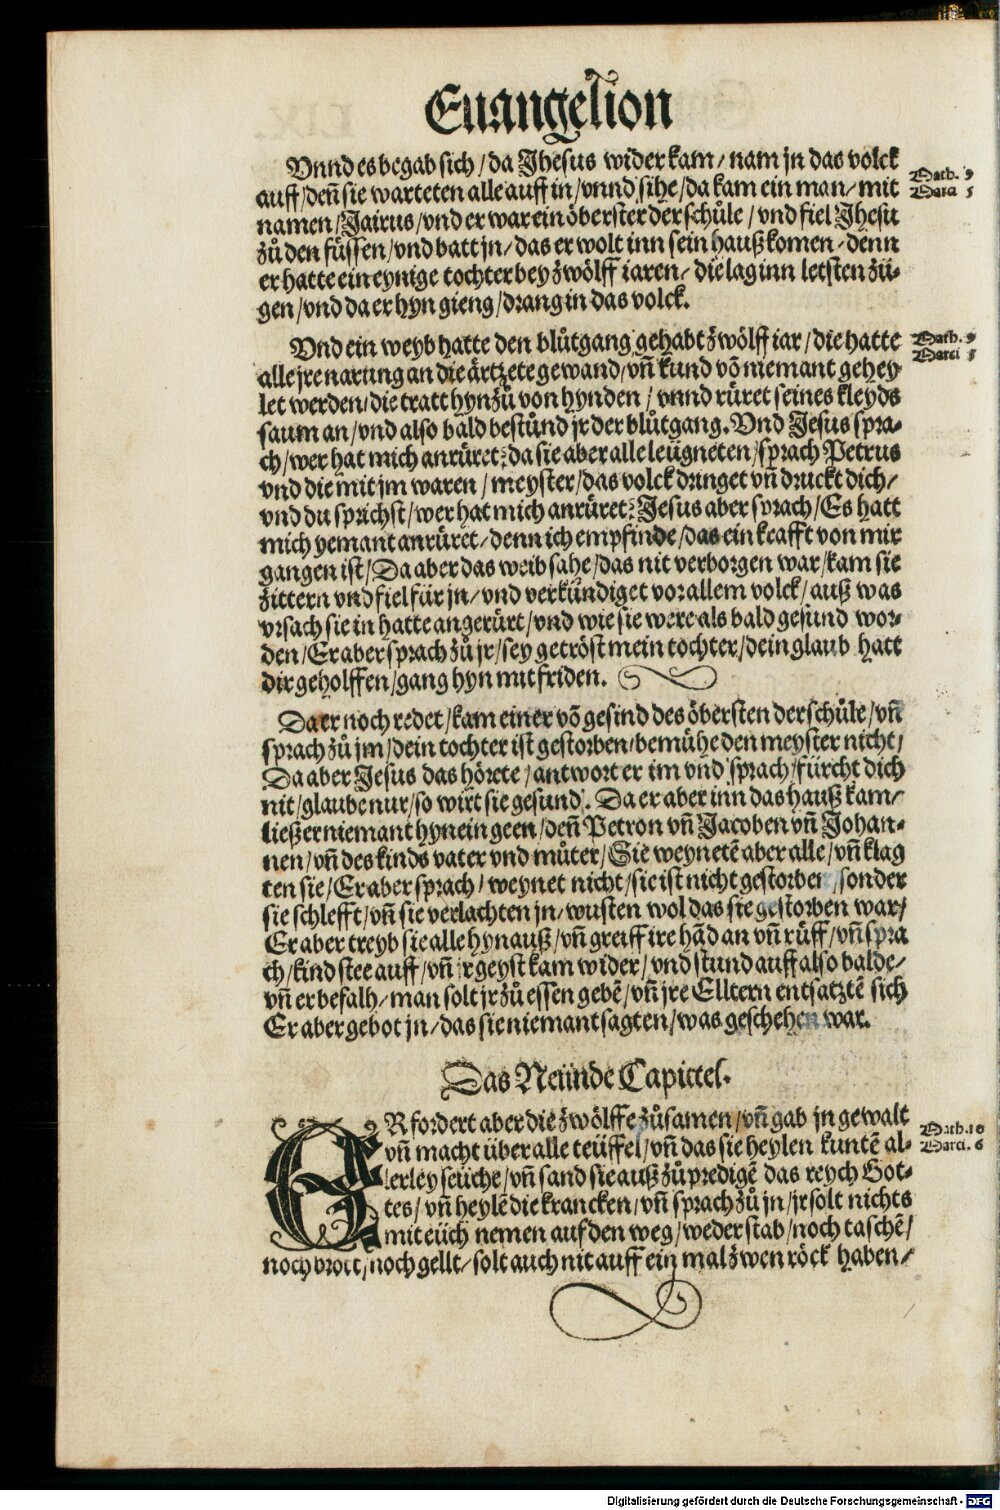 Euangelion
Vnnd es begab sich / da Jhesus wider kam / nam jn das volck
auff / deñ sie warteten alle auff in / vnnd sihe / da kam ein man / mit
namen / Jairus / vnd er war ein öberster der schůle / vnd fiel Jhesu
zů den füssen / vnd batt jn / das er wolt inn sein hauß komen / denn
er hatte ein eynige tochter bey zwölff iaren / die lag inn letsten zü-
gen / vnd da er hyn gieng / drang in das volck.
Math. 9
Marci 5
Vnd ein weyb hatte den blůtgang gehabt zwölff iar / die hatte
alle jre narung an die ärtzete gewand / vñ kund võ niemant gehey
let werden / die tratt hynzů von hynden / vnnd rüret seines kleyds
saum an / vnd also bald bestůnd jr der blůtgang. Vnd Jesus spra-
ch / wer hat mich anrüret? da sie aber alle leügneten / sprach Petrus
vnd die mit jm waren / meyster / das volck dringet vñ druckt dich /
vnd du sprichst / wer hat mich anrüret? Jesus aber sprach / Es hatt
mich yemant anrüret / denn ich empfinde / das ein krafft von mir
gangen ist / Da aber das weib sahe / das nit verborgen war / kam sie
zittern vnd fiel für jn / vnd verkündiget vor allem volck / auß was
vrsach sie in hatte angerürt / vnd wie sie were als bald gesund wor-
den / Er aber sprach zů jr / sey getröst mein tochter / dein glaub hatt
dir geholffen / gang hyn mit friden.
Math. 9
Marci 5
Da er noch redet / kam einer võ gesind des öbersten der schůle / vñ
sprach zů jm / dein tochter ist gestorben / bemühe den meyster nicht /
Da aber Jesus das hörete / antwort er im vnd sprach / fürcht dich
nit / glaube nur / so wirt sie gesund. Da er aber inn das hauß kam /
ließ er niemant hynein geen / deñ Petron vñ Jacoben vñ Johan-
nen / vñ des kinds vater vnd můter / Sie weynetẽ aber alle / vñ klag
ten sie / Er aber sprach / weynet nicht / sie ist nicht gestorben / sonder
sie schlefft / vñ sie verlachten jn / wusten wol das sie gestorben war /
Er aber treyb sie alle hynauß / vñ greiff ire hãd an vñ růff / vñ spra
ch / kind stee auff / vñ ir geyst kam wider / vnd stund auff also balde /
vñ er befalh / man solt jr zů essen gebẽ / vñ jre Elltern entsatztẽ sich
Er aber gebot jn / das sie niemant sagten / was geschehen war.
Das Neünde Capittel.
ER fordert aber die zwölffe zůsamen / vñ gab jn gewalt
vñ macht über alle teüffel / vñ das sie heylen kuntẽ al-
lerley seüche / vñ sand sie auß zů predigẽ das reych Got-
tes / vñ heylẽ die krancken / vñ sprach zů jn / jr solt nichts
mit eüch nemen auf den weg / weder stab / noch taschẽ /
noch brott / noch gellt / solt auch nit auff ein mal zwen röck haben /
Math. 10
Marci. 6
Digitalisierung gefördert durch die Deutsche Forschungsgemeinschaft - DFG